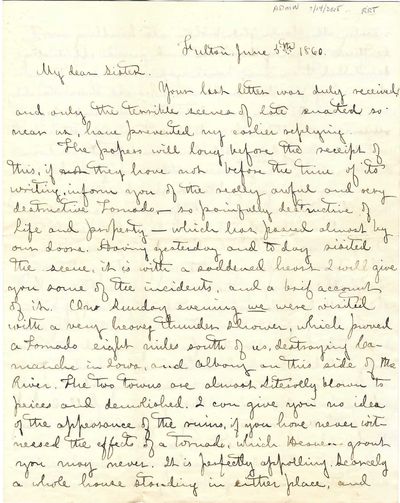 ADMIN 7/14/2005 RRT
Fulton, June 5th 1860.
My dear Sister.
Your last letter was duly received,
and only the terrible scenes of late enacted so
near us, have prevented my earlier replying.
The papers will long before the receipt of
this, if not they have not before the time of its
writing, inform you of the really awful and very
destructive Tornado, — so painfully destructive of
life and property — which has passed almost by
our doors. Having yesterday and to day visited
the scene, it is with a saddened heart I will give
you some of the incidents, and a brief account
of it. On Sunday evening we were visited
with a very heavy thunder shower, which proved
a Tornado eight miles south of us, destroying Ca-
manche in Iowa, and Albany on this side of the
River. The two towns are almost literally blown to
peices and demolished. I can give you no idea
of the appearance of the ruins, if you have never wit-
nessed the effects of a tornado, which Heaven grant
you may never. It is perfectly appalling. Scarcely
a whole house standing in either place, and